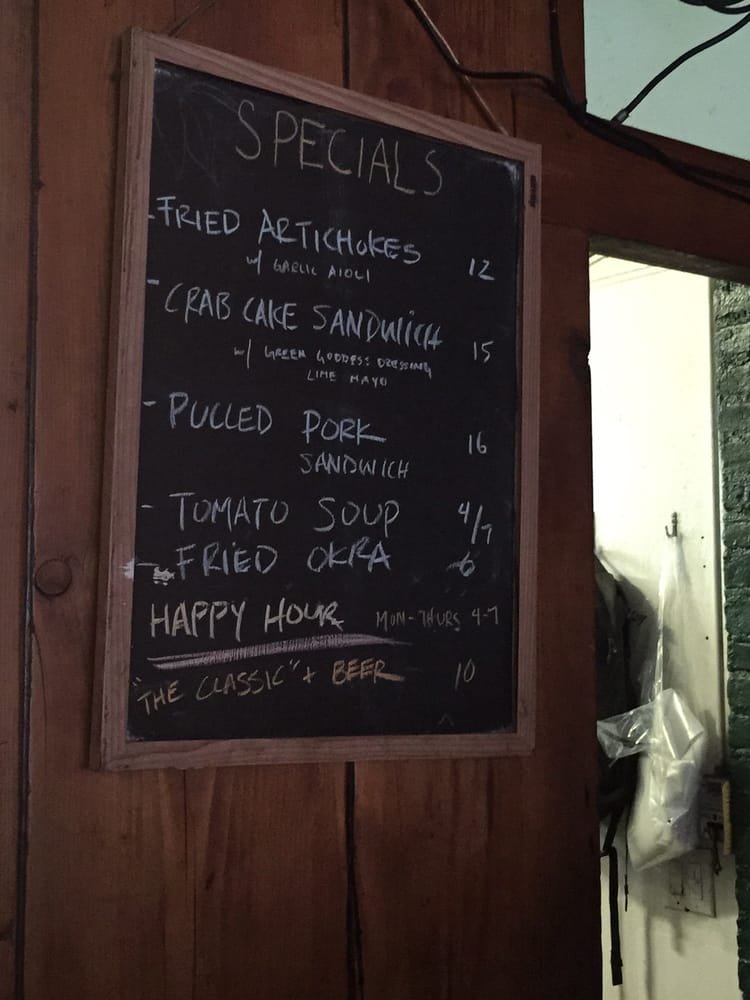 SPECIALS
- FRIED ARTICHOKES 12
w/ GARLIC AIOLI
- CRAB CAKE SANDWICH 15
w/ GREEN GODDESS DRESSING
LIME MAYO
- PULLED PORK 16
SANDWICH
- TOMATO SOUP 4/7
- FRIED OKRA 6
HAPPY HOUR MON-THURS 4-7
"THE CLASSIC" + BEER 10